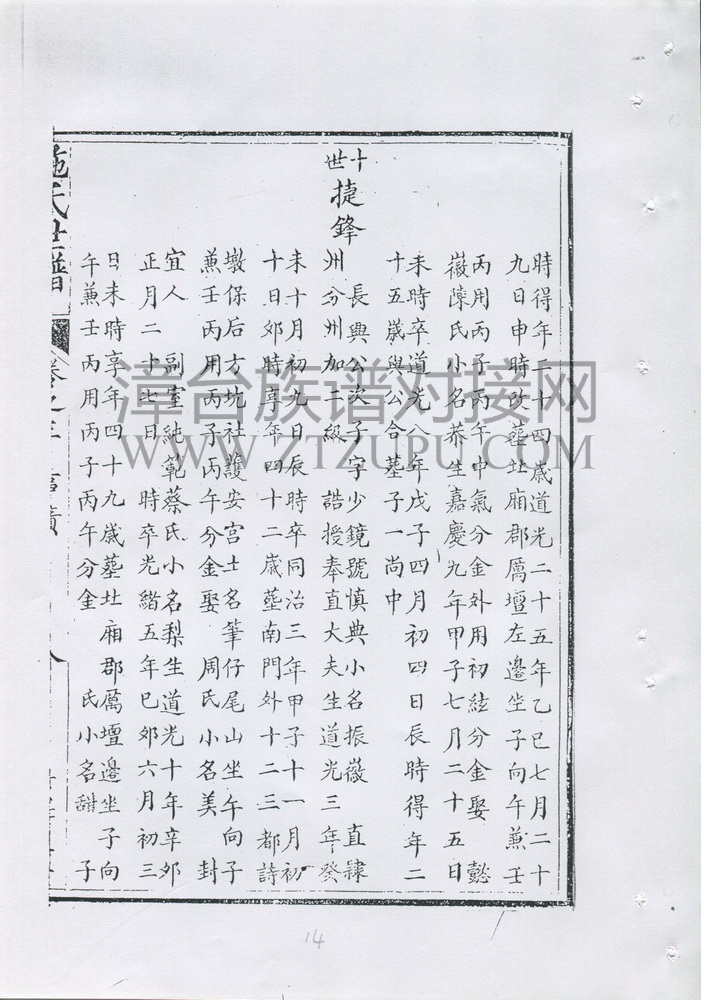 時得年二十四歲道光二十五年乙巳七月二十
九日申時改葬北廂郡厲壇左邊坐子向午兼壬
丙用丙子丙午中氣分金外用初絃分金娶 懿
薇陳氏小名恭生嘉慶九年甲子七月二十五日
未時卒道光八年戊子四月初四日辰時得年二
十五歲與公合葬子一尚中
十世
捷鋒
長興公次子字少鏡號慎典小名振薇 直隸
州分州加二級 誥授奉直大夫生道光三年癸
未十月初九日辰時卒同治三年甲子十一月初
十日卯時享年四十二歲葬南門外十二三都詩
墩保后方坑社護安宮土名筆仔尾山坐午向子
兼壬丙用丙子丙午分金娶 周氏小名美 封
宜人 副室純範蔡氏小名梨生道光十年辛卯
正月二十七日 時卒光緒五年己卯六月初三
日未時享年四十九歲葬北廂郡厲壇邊坐子向
午兼壬丙用丙子丙午分金 氏小名甜 子
施氏世譜
卷之
漳台族谱对接网
WWW.ZTZUPU.COM
14